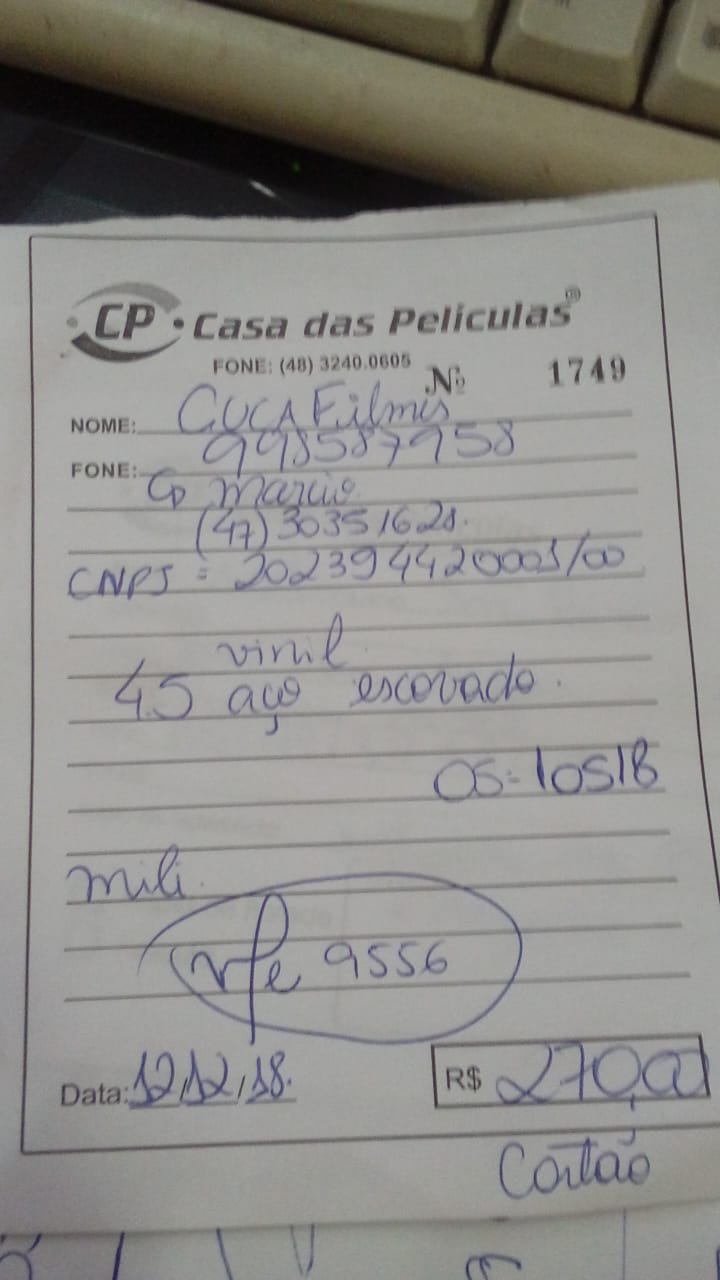 CP • Casa das Peliculas®
FONE: (48) 3240.0605
Nº 1749
NOME: CUCA Filmes
FONE: 998587958
Marcio
(47) 30351628.
CNPJ = 202394420001/00
vinil
45 aço escovado.
OS: 10518
mili.
nfe 9556
Data: 12,12,18.
R$ 270,00
Cartão